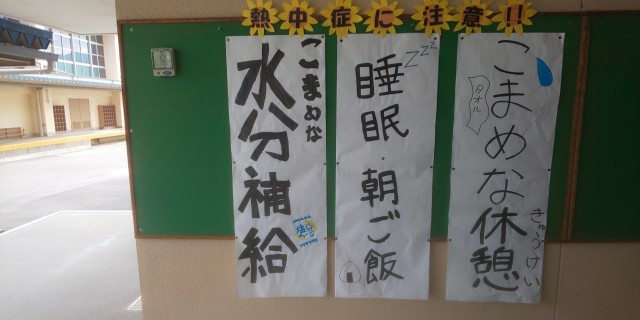 熱中症に注意!!
こまめな休憩
きゅうけい
タオル
睡眠・朝ご飯
zzz
こまめな
水分補給